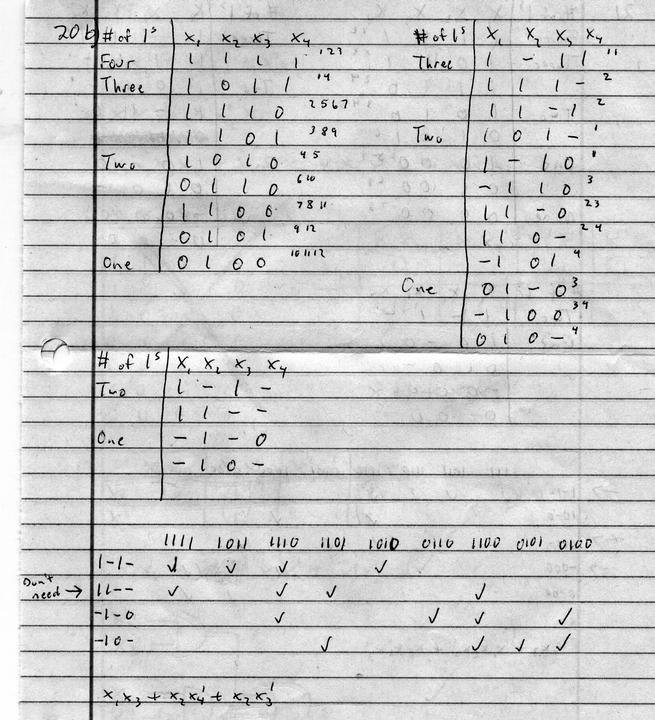 20b # of 1s x1 x2 x3 x4
Four 1 1 1 1 123
Three 1 0 1 1 14
1 1 1 0 2567
1 1 0 1 389
Two 1 0 1 0 45
0 1 1 0 6 10
1 1 0 0 7 8 11
0 1 0 1 9 12
One 0 1 0 0 10 11 12
# of 1s x1 x2 x3 x4
Three 1 - 1 1 11
1 1 1 - 2
1 1 - 1 2
Two 1 0 1 - 1
1 - 1 0 1
- 1 1 0 3
1 1 - 0 23
1 1 0 - 24
- 1 0 1 4
One 0 1 - 0 3
- 1 0 0 34
0 1 0 - 4
# of 1s x1 x2 x3 x4
Two 1 - 1 -
1 1 - -
One - 1 - 0
- 1 0 -
1111 1011 1110 1101 1010 0110 1100 0101 0100
1-1- ✓ ✓ ✓ ✓
Don't need → 11-- ✓ ✓ ✓ ✓
-1-0 ✓ ✓ ✓ ✓
-10- ✓ ✓ ✓ ✓
x1x3 + x2x4' + x2x3'